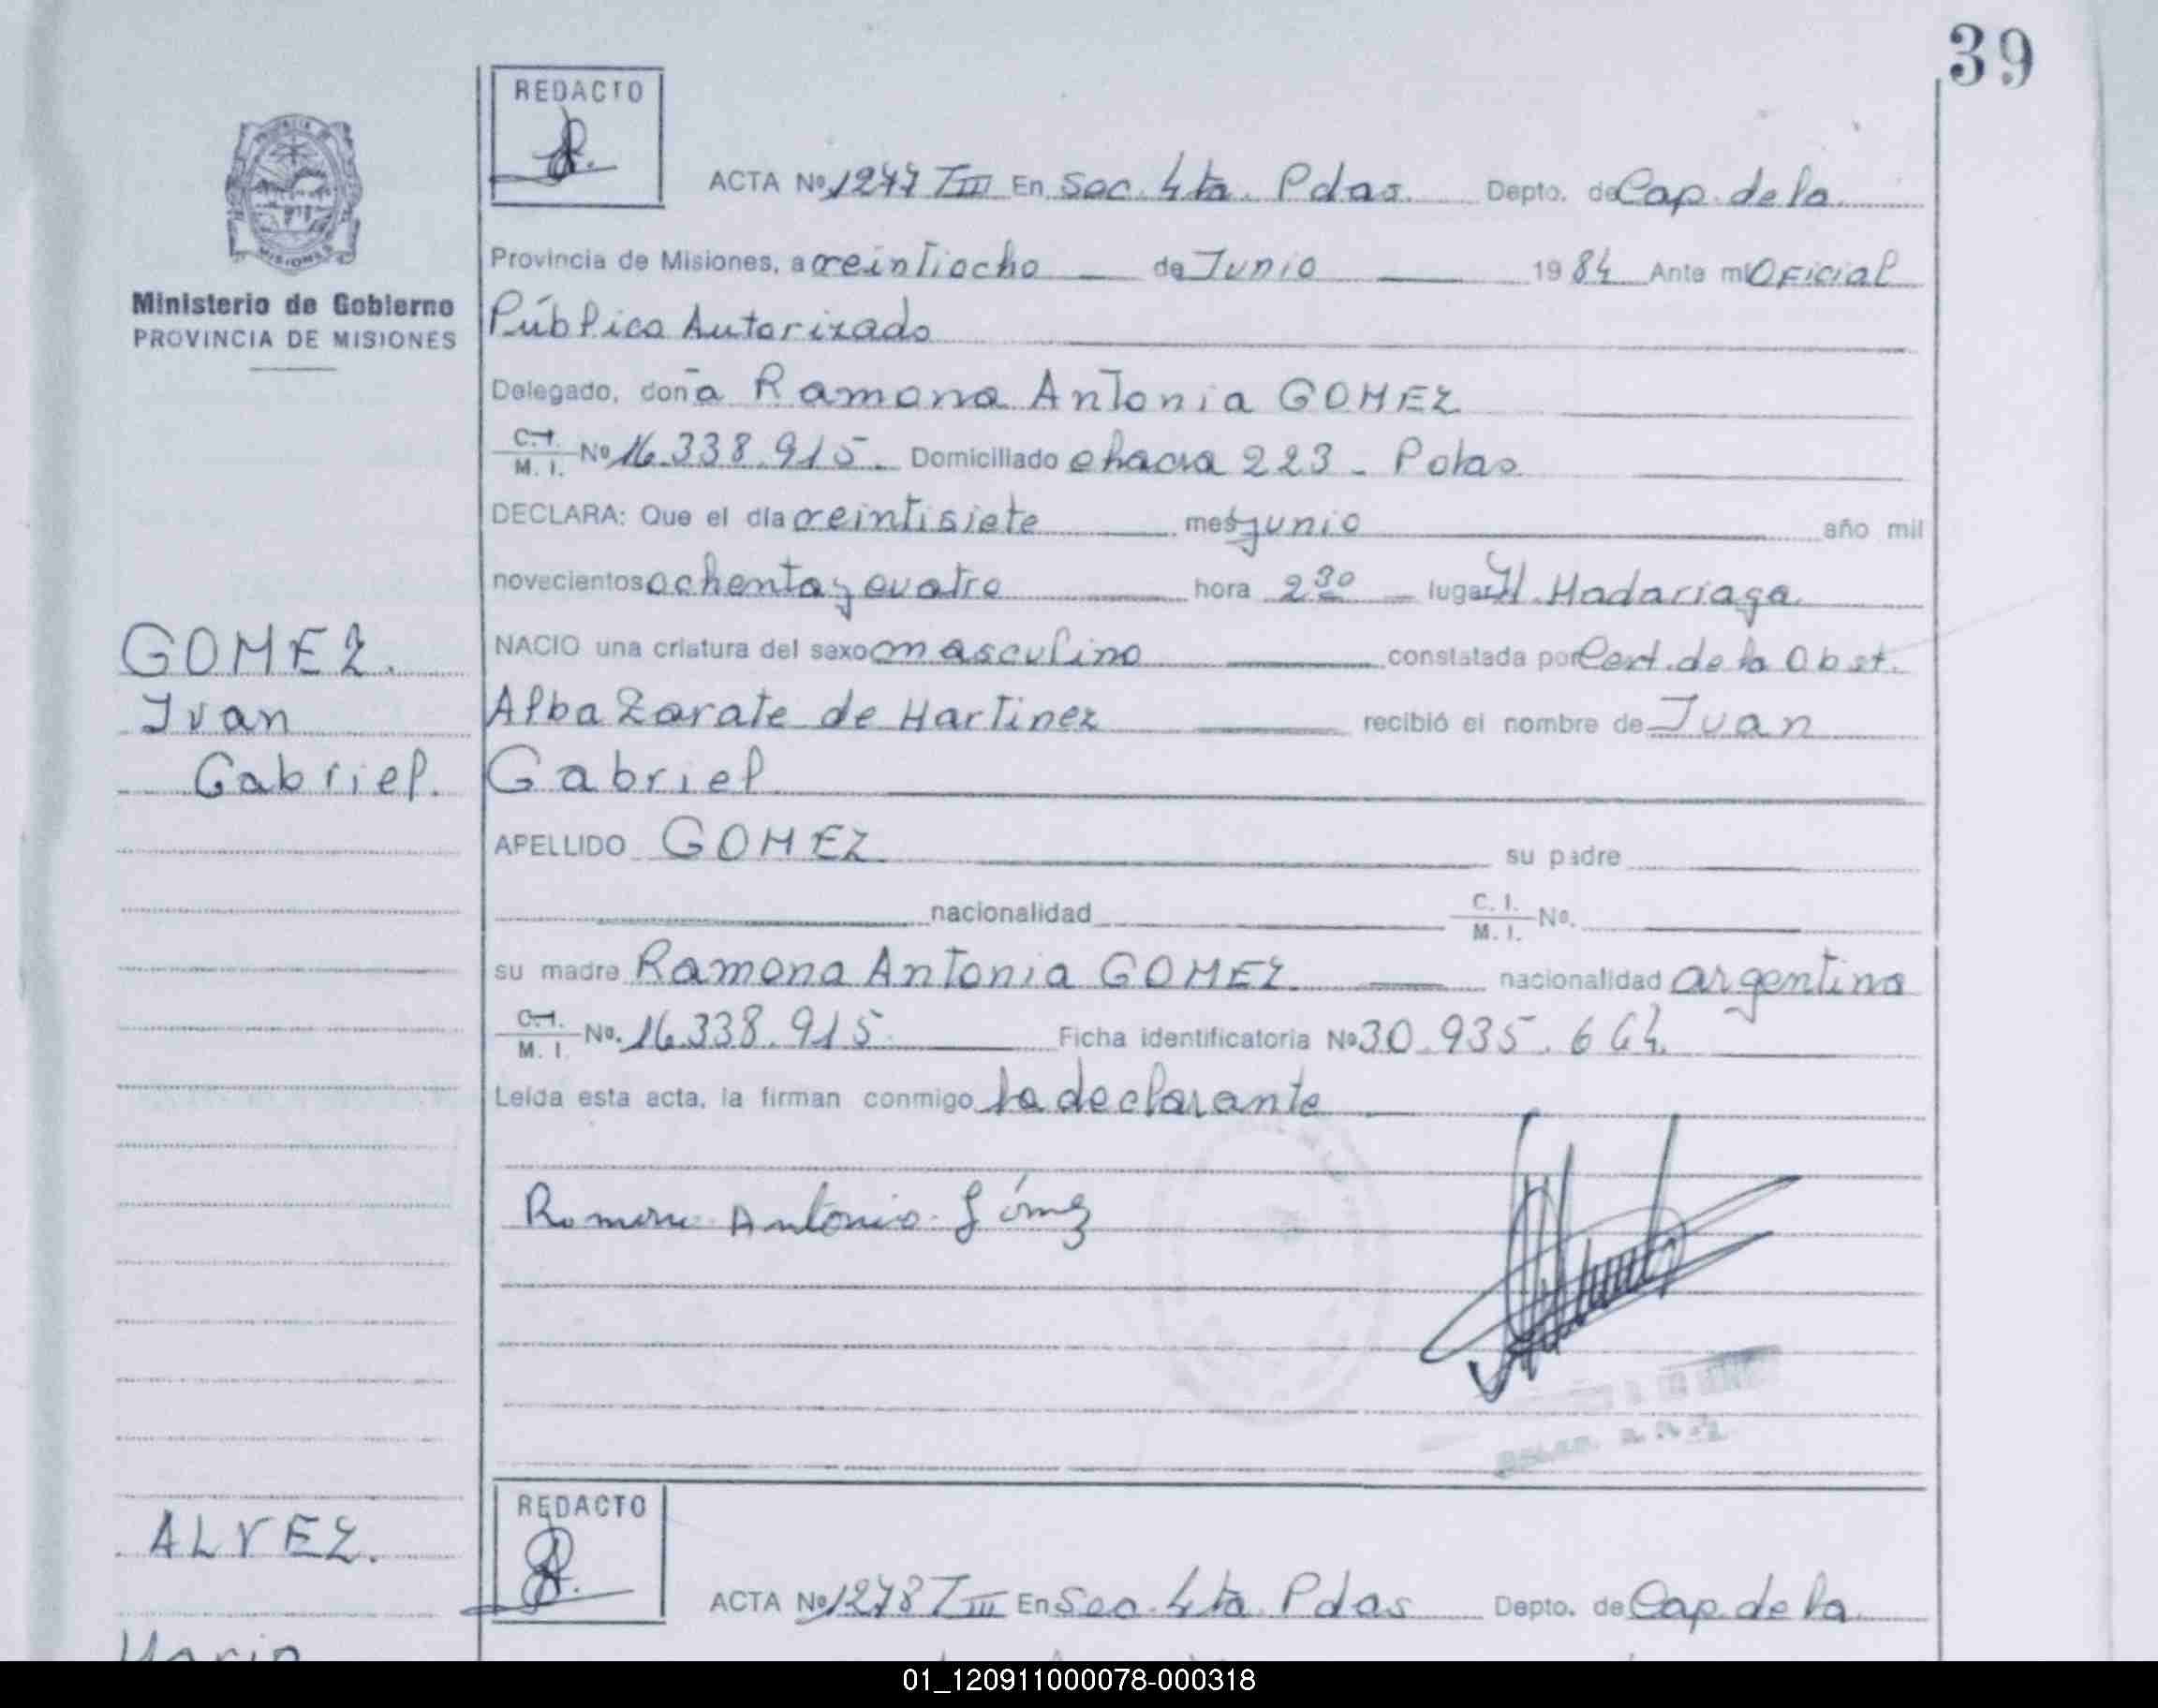 39
REDACTO
ACTA Nº 1277 T III En Sec. 4ta. Pdas. Depto. de Cap. de la
Provincia de Misiones, a veintiocho de Junio 1984 Ante mi Oficial
Ministerio de Gobierno
PROVINCIA DE MISIONES
Público Autorizado
Delegado, doña Ramona Antonia GOMEZ
C.I. M. I. Nº 16.338.915. Domiciliado chacra 223 - Pdas
DECLARA: Que el día veintisiete mes junio año mil
novecientos ochenta y cuatro hora 2 30 lugar H. Madariaga
GOMEZ.
NACIO una criatura del sexo masculino constatada por Cert. de la Obst.
Juan
Alba Zarate de Martinez recibió el nombre de Juan
Gabriel.
Gabriel
APELLIDO GOMEZ su padre
nacionalidad C. I. M. I. Nº.
su madre Ramona Antonia GOMEZ nacionalidad argentina
C.I. M. I. Nº. 16.338.915. Ficha identificatoria Nº 30.935.664.
Leída esta acta, la firman conmigo la declarante
Ramona Antonia Gómez
ALVEZ.
REDACTO
ACTA Nº 1278 T III En Sec. 4ta. Pdas Depto. de Cap. de la
Mario
01_120911000078-000318